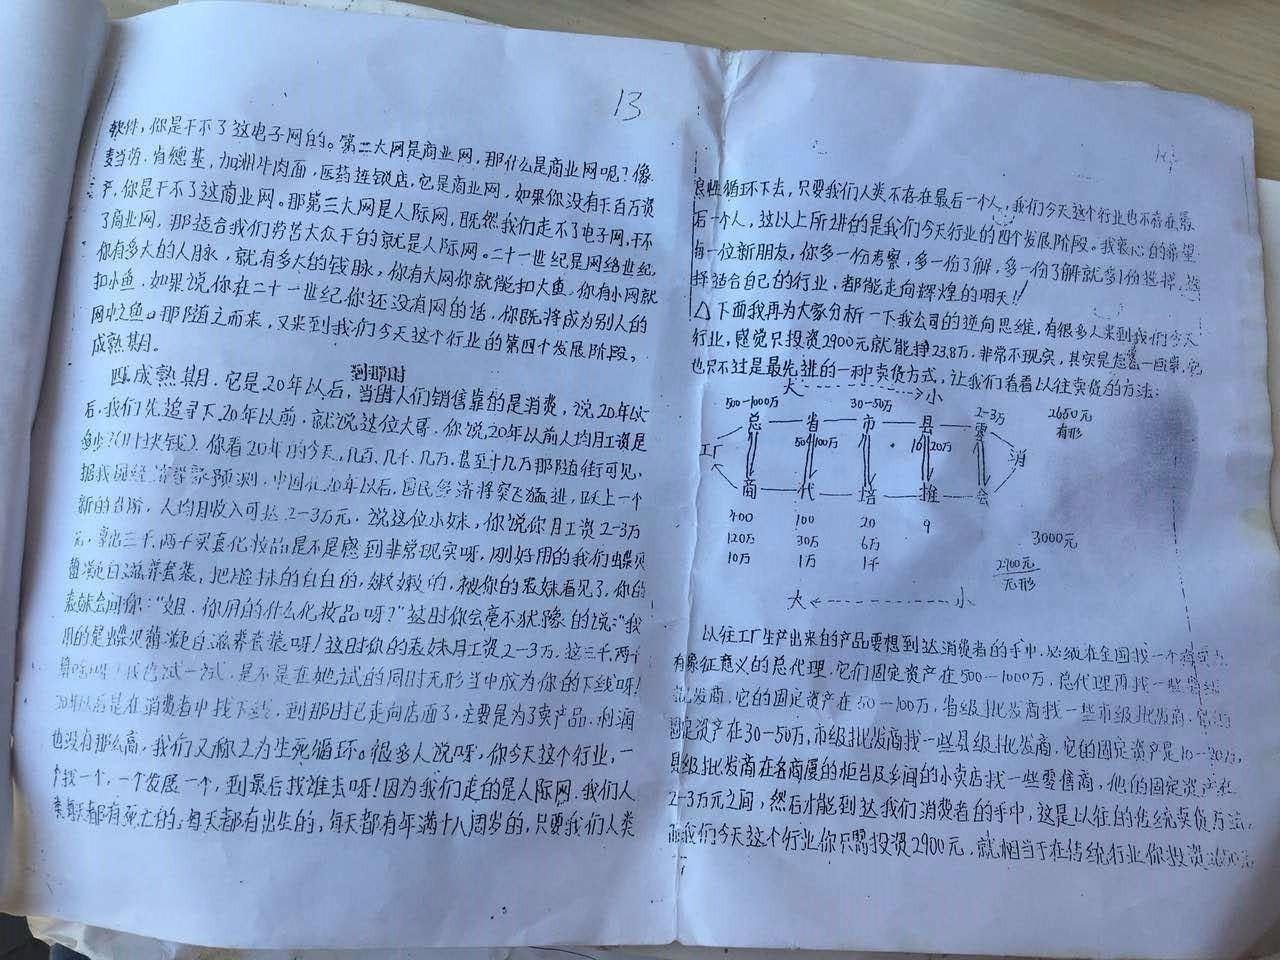 13
软件，你是干不了这电子网的。第二大网是商业网，那什么是商业网呢？像
麦当劳．肯德基，加洲牛肉面，医药连锁店，它是商业网，如果你没有千百万资
产，你是干不了这商业网。那第三大网是人际网，既然我们走不了电子网，干不
了商业网，那适合我们劳苦大众干的就是人际网。二十一世纪是网络世纪，
你有多大的人脉，就有多大的钱脉，你有大网你就能扣大鱼，你有小网就
扣小鱼，如果说你在二十一世纪你还没有网的话，你既将成为别人的
网中之鱼。那随之而来，又来到我们今天这个行业的第四个发展阶段，
成熟期。
四成熟期．它是20年以后，到那时人们销售靠的是消费，说20年以
后，我们先追寻下20年以前．就说这位大哥．你说20年以前人均月工资是
多少？（几十块钱）．你看20年后的今天，几百、几千、几万、甚至十几万那随街可见，
据我国经济学家预测，中国在20年以后，国民经济将突飞猛进，跃上一个
新的台阶，人均月收入可达2—3万元，说这位小妹，你说你月工资2—3万
元，拿出三千、两千买套化妆品是不是感到非常现实呀，刚好用的我们蝶贝
蕾嫩白滋养套装，把脸抹的白白的，嫩嫩的，被你的表妹看见了，你的
表妹会问你：“姐．你用的什么化妆品呀？”这时你会毫不犹豫的说：“我
用的是蝶贝蕾嫩白滋养套装呀！这时你的表妹月工资2—3万．这三千、两千
试一试，是不是在她试的同时无形当中成为你的下线呀！
20年以后是在消费者中找下线，到那时已走向店面了，主要是为了卖产品，利润
也没有那么高，我们又称之为生死循环。很多人说呀，你今天这个行业，一
个找一个，一个发展一个，到最后找谁去呀！因为我们走的是人际网．我们人
类每天都有死亡的，每天都有出生的，每天都有年满十八周岁的，只要我们人类
良性循环下去，只要我们人类不存在最后一个人，我们今天这个行业也不存在最
后一个人，这以上所讲的是我们今天行业的四个发展阶段。我衷心的希望
每一位新朋友，你多一份考察，多一份了解，多一份了解就多一份选择，选
择适合自己的行业，都能走向辉煌的明天！！
△下面我再为大家分析一下我公司的逆向思维，有很多人来到我们今天
行业，感觉只投资2900元就能挣238万．非常不现实，其实是怎么一回事，它
也只不过是最先进的一种卖货方式，让我们看看以往卖货的方法：
大 小
500—1000万 30—50万 2—3万 2650元
有形
总 省 市 县 零
50—100万 10—20万
工厂 消
商 代 培 推 会
400 100 20 9
120万 30万 6万 3000元
10万 1万 1千 2900元
无形
大 小
以往工厂生产出来的产品要想到达消费者的手中，必须在全国找一个
有象征意义的总代理，它们固定资产在500—1000万．总代理再找一些省级
批发商．它的固定资产在50—100万，省级批发商找一些市级批发商，它的
固定资产在30—50万，市级批发商找一些县级批发商，它的固定资产是10—20万，
县级批发商在各商厦的柜台及乡间的小卖店找一些零售商，他的固定资产在
2—3万元之间，然后才能到达我们消费者的手中，这是以往的传统卖货方法，
而我们今天这个行业你只需投资2900元，就相当于在传统行业你投资